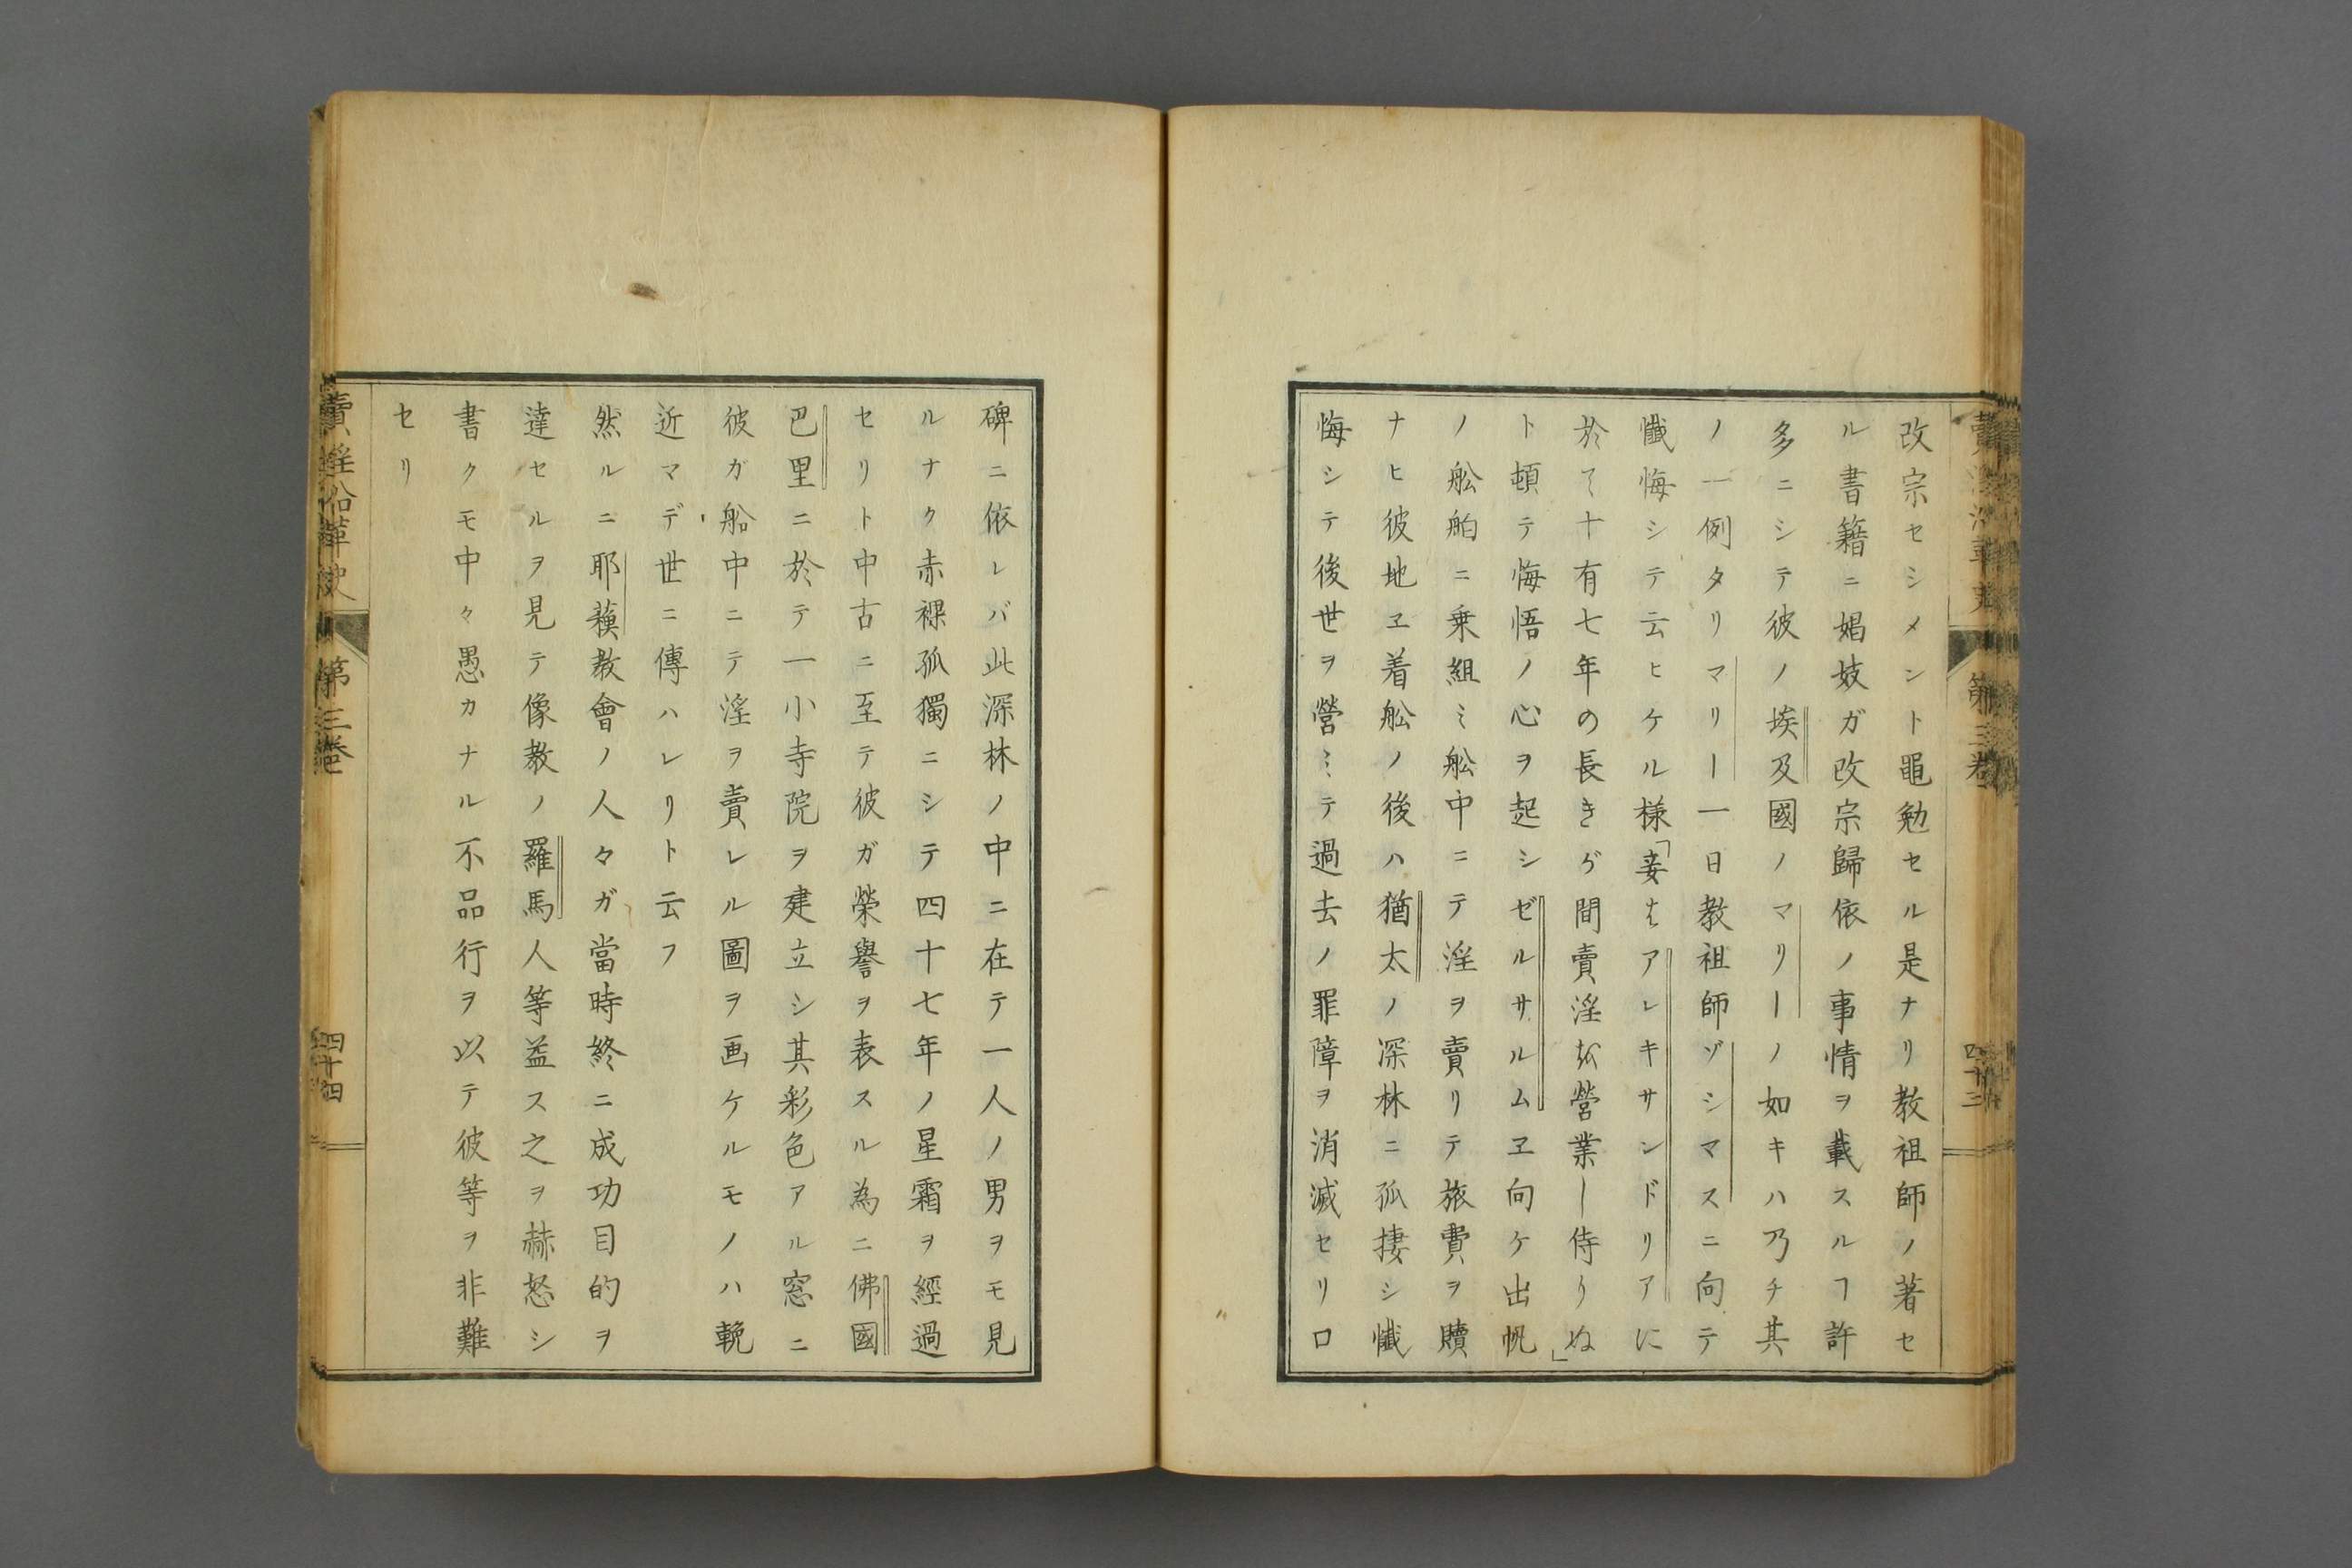 改宗セシメント黽勉セル是ナリ教祖師ノ著セ
ル書籍ニ娼妓ガ改宗歸依ノ事情ヲ載スルヿ許
多ニシテ彼ノ埃及國ノマリーノ如キハ乃チ其
ノ一例タリマリー一日教祖師ゾシマスニ向テ
懺悔シテ云ヒケル様「妾はアレキサンドリアに
於て十有七年の長きが間賣淫を營業し侍りぬ」
ト頓テ悔悟ノ心ヲ起シゼルサルムヱ向ケ出帆
ノ舩舶ニ乗組ミ舩中ニテ淫ヲ賣リテ旅費ヲ贖
ナヒ彼地ヱ着舩ノ後ハ猶太ノ深林ニ孤捿シ懺
悔シテ後世ヲ營ミテ過去ノ罪障ヲ消滅セリ口
賣淫沿革史
第三卷
四十三
碑ニ依レバ此深林ノ中ニ在テ一人ノ男ヲモ見
ルナク赤裸孤獨ニシテ四十七年ノ星霜ヲ經過
セリト中古ニ至テ彼ガ榮譽ヲ表スル為ニ佛國
巴里ニ於テ一小寺院ヲ建立シ其彩色アル窓ニ
彼ガ船中ニテ淫ヲ賣レル圖ヲ画ケルモノハ輓
近マデ世ニ傳ハレリト云フ
然ルニ耶蘓教會ノ人々ガ當時終ニ成功目的ヲ
達セルヲ見テ像教ノ羅馬人等益ス之ヲ赫怒シ
書クモ中々愚カナル不品行ヲ以テ彼等ヲ非難
セリ
賣淫沿革史
第三卷
四十四